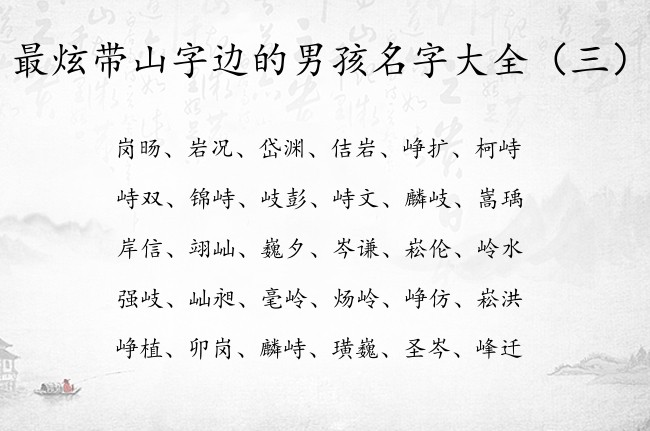 最炫带山字边的男孩名字大全（三）
岗旸、岩况、岱渊、佶岩、峥扩、柯峙
峙双、锦峙、岐彭、峙文、麟岐、嵩瑀
岸信、翊屾、巍夕、岑谦、崧伦、岭水
强岐、屾昶、毫岭、炀岭、峥仿、崧洪
峥植、卯岗、麟峙、璜巍、圣岑、峰迁